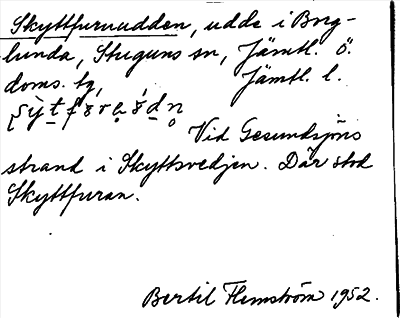 Skyttfuruudden, udde i Borg-
lunda, Stuguns sn, Jämtl. ö.
doms. tg, Jämtl. l.
Vid Gesundsjöns
strand i Skyttsvedjen. Där stod
Skyttfuran.
Bertil Flemström 1952.